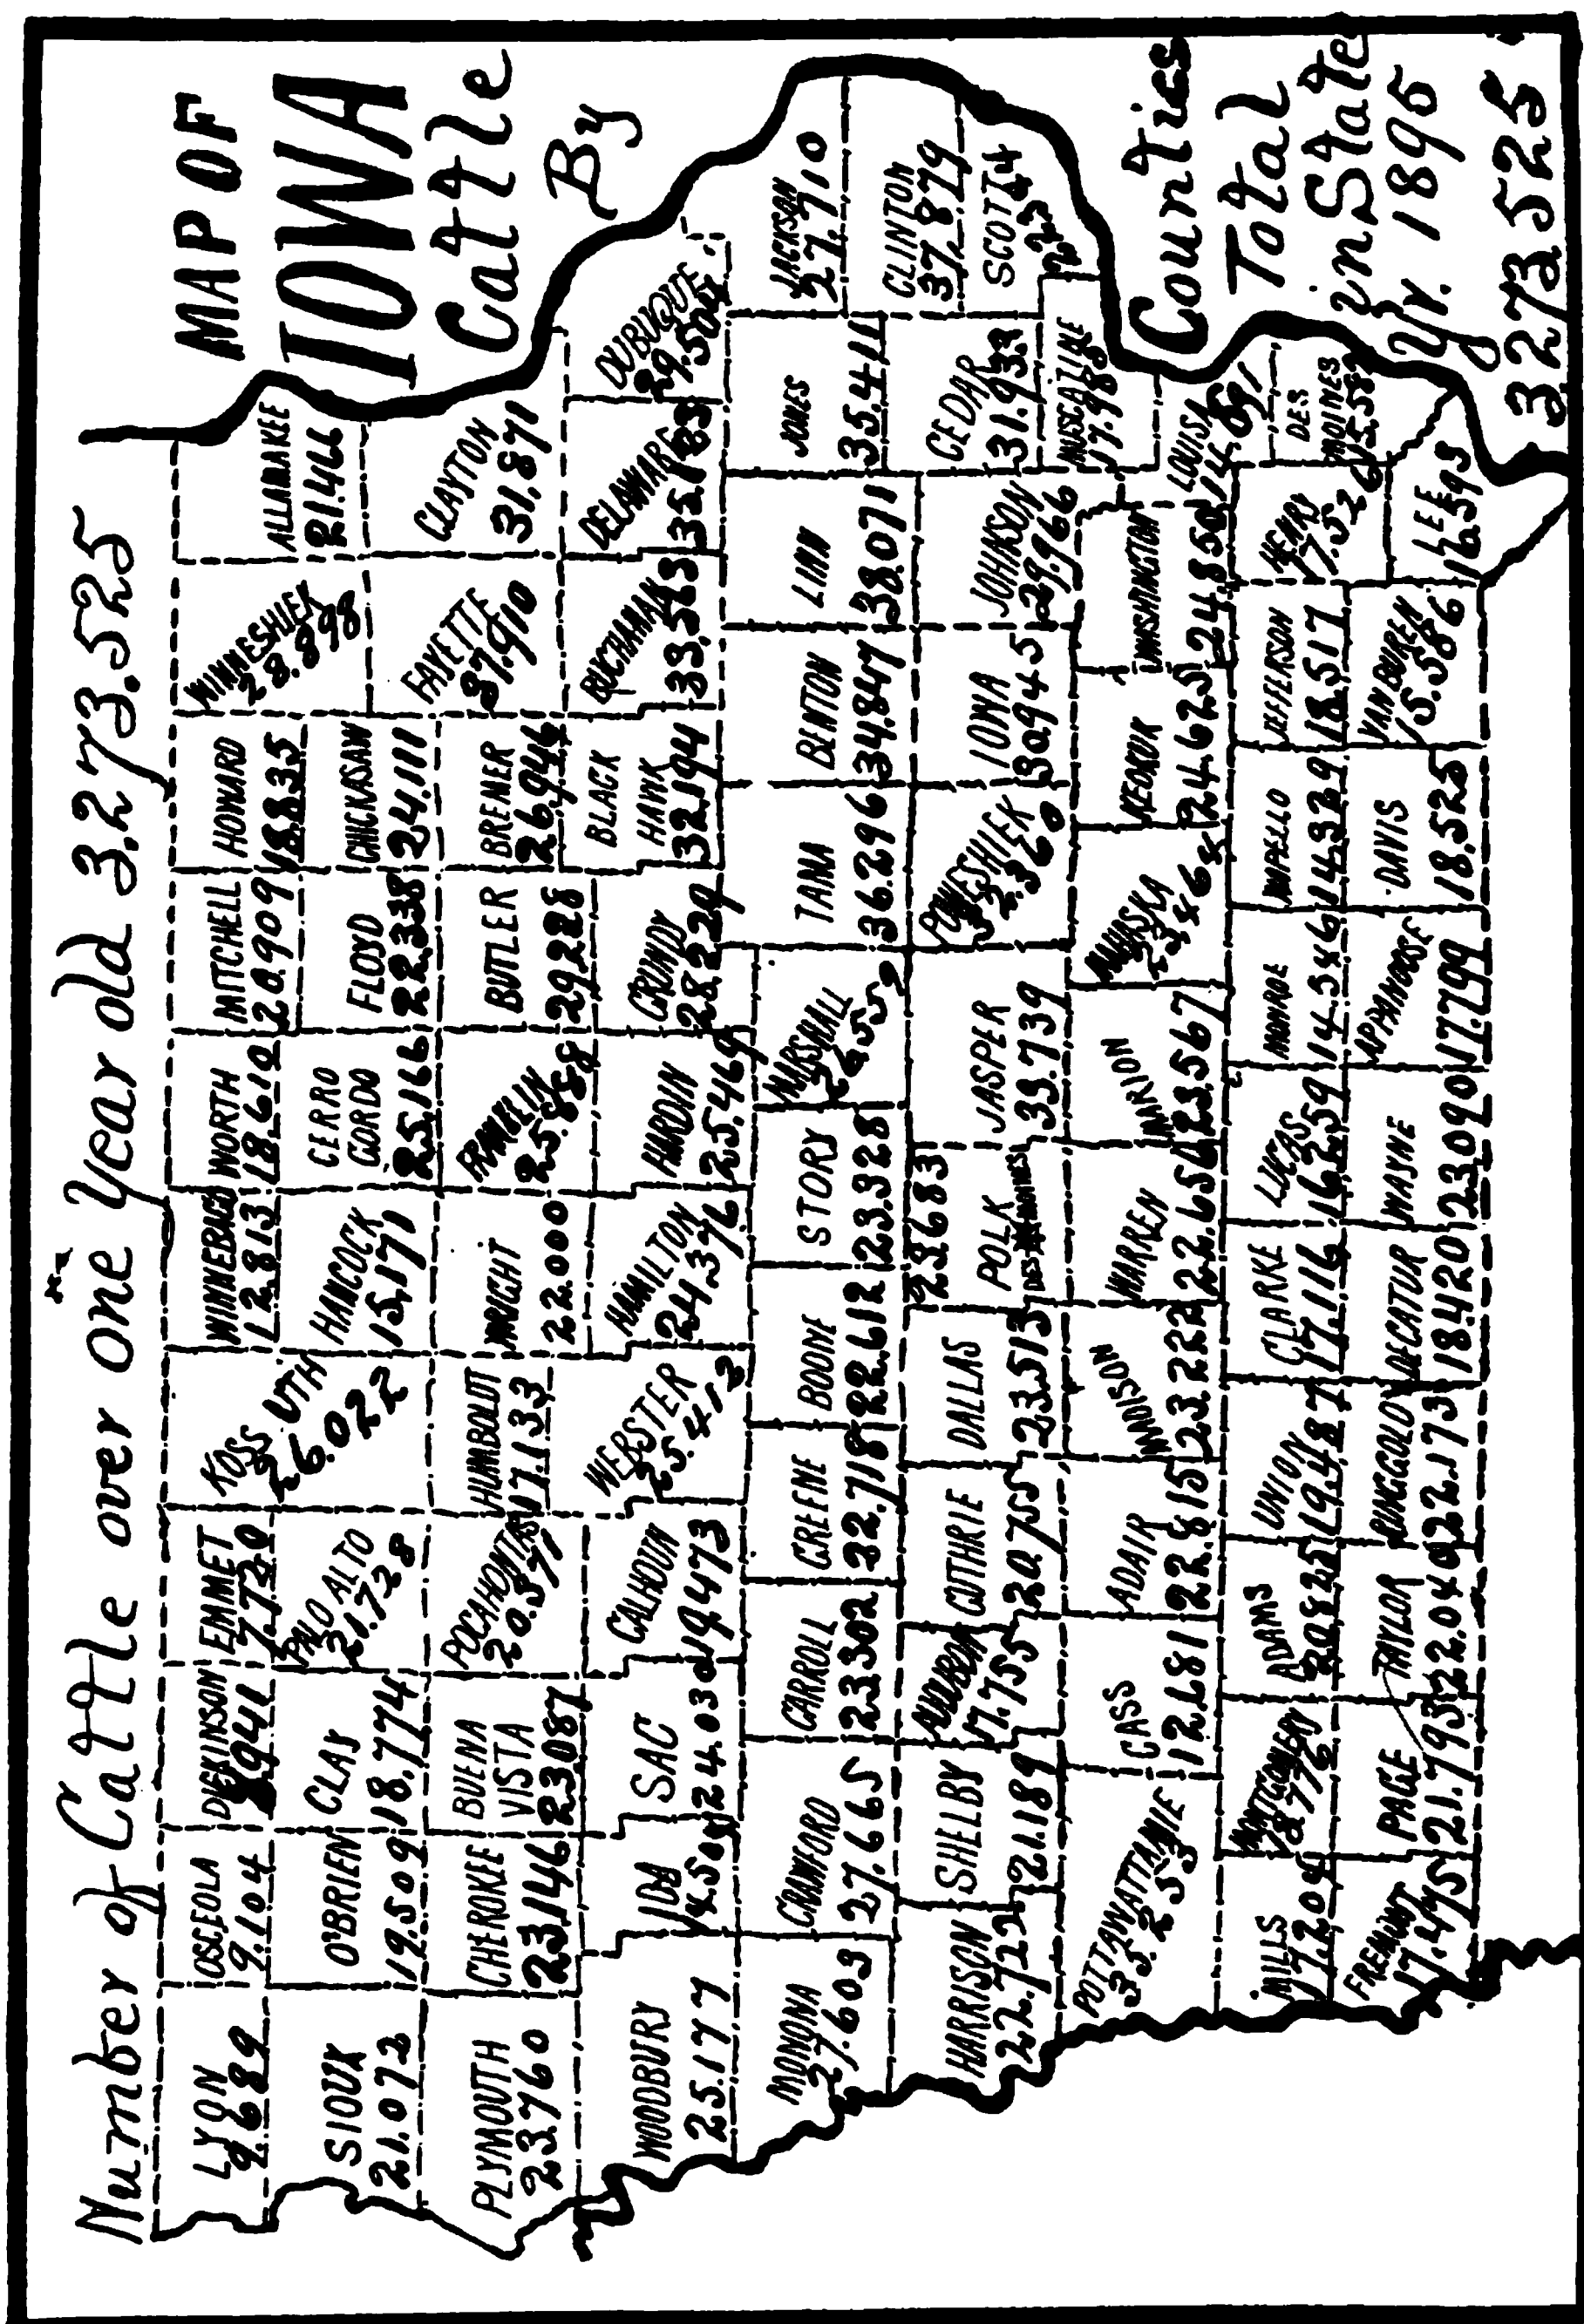 Number of Cattle over one Year old 3.273.525
MAP OF
IOWA
Cattle
By
Counties
Total
in State
Yr. 1895
3273525
LYON
9.689
OSCEOLA
9.104
DICKINSON
8941
EMMET
7.730
WINNEBAGO
12.813
WORTH
18.610
MITCHELL
20.909
HOWARD
18.835
WINNESHIEK
28.898
ALLAMAKEE
21.466
SIOUX
21.072
O'BRIEN
19.509
CLAY
18.774
PALO ALTO
21.728
KOSSUTH
26.022
HANCOCK
15.171
CERRO
GORDO
25.166
FLOYD
22.338
CHICKASAW
24.111
FAYETTE
37.910
CLAYTON
31.871
PLYMOUTH
23.760
CHEROKEE
23.146
BUENA
VISTA
23.087
POCAHONTAS
20.371
HUMBOLDT
17.133
WRIGHT
22.000
FRANKLIN
25.858
BUTLER
29.228
BREMER
26.946
BLACK
HAWK
32.194
BUCHANAN
33.563
DELAWARE
35.183
DUBUQUE
29.504
WOODBURY
25.177
IDA
14.501
SAC
24.030
CALHOUN
19.473
WEBSTER
25.413
HAMILTON
24.376
HARDIN
25.469
GRUNDY
28.229
MONONA
27.603
CRAWFORD
27.665
CARROLL
23.302
GREENE
32.718
BOONE
22.612
STORY
23.328
MARSHALL
TAMA
36.296
BENTON
34.847
LINN
38.071
JONES
35.411
JACKSON
27.710
CLINTON
37.879
SCOTT
HARRISON
22.722
SHELBY
21.189
AUDUBON
17.755
GUTHRIE
20.755
DALLAS
23.513
POLK
23.683
DES MOINES
JASPER
33.739
POWESHIEK
32.360
IOWA
30.945
JOHNSON
29.966
CEDAR
31.933
MUSCATINE
17.985
POTTAWATTAMIE
35.253
CASS
12.681
ADAIR
22.815
MADISON
23.222
WARREN
22.656
MARION
23.567
MAHASKA
KEOKUK
24.625
WASHINGTON
24.850
LOUISA
MILLS
17.204
MONTGOMERY
18.776
ADAMS
20.825
UNION
19.487
CLARKE
17.116
LUCAS
16.259
MONROE
14.546
WAPELLO
14.329
JEFFERSON
18.517
HENRY
17.526
DES
MOINES
15.582
FREMONT
17.475
PAGE
21.793
TAYLOR
22.040
RINGGOLD
22.173
DECATUR
18.420
WAYNE
23.090
APPANOOSE
17.799
DAVIS
18.525
VAN BUREN
15.586
LEE
16.593